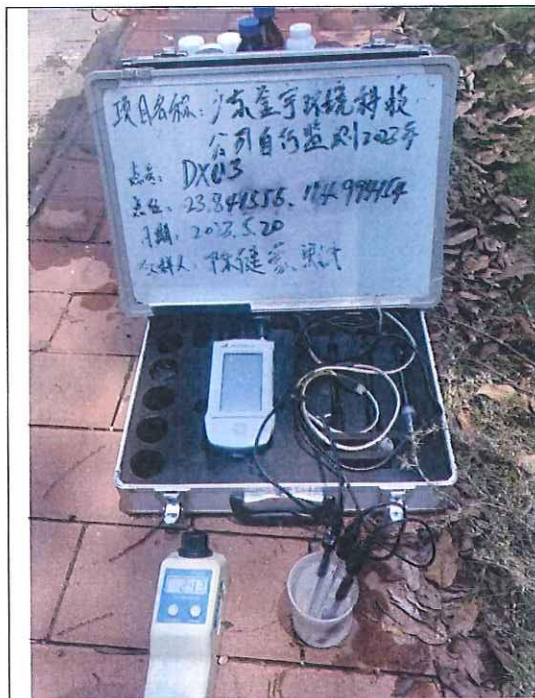 项目名称:广东益宇环境科技
公司自行监测2023年
点号: DX03
点位: 23.841556, 114.999454
日期: 2023.5.20
采样人: 陈健豪、